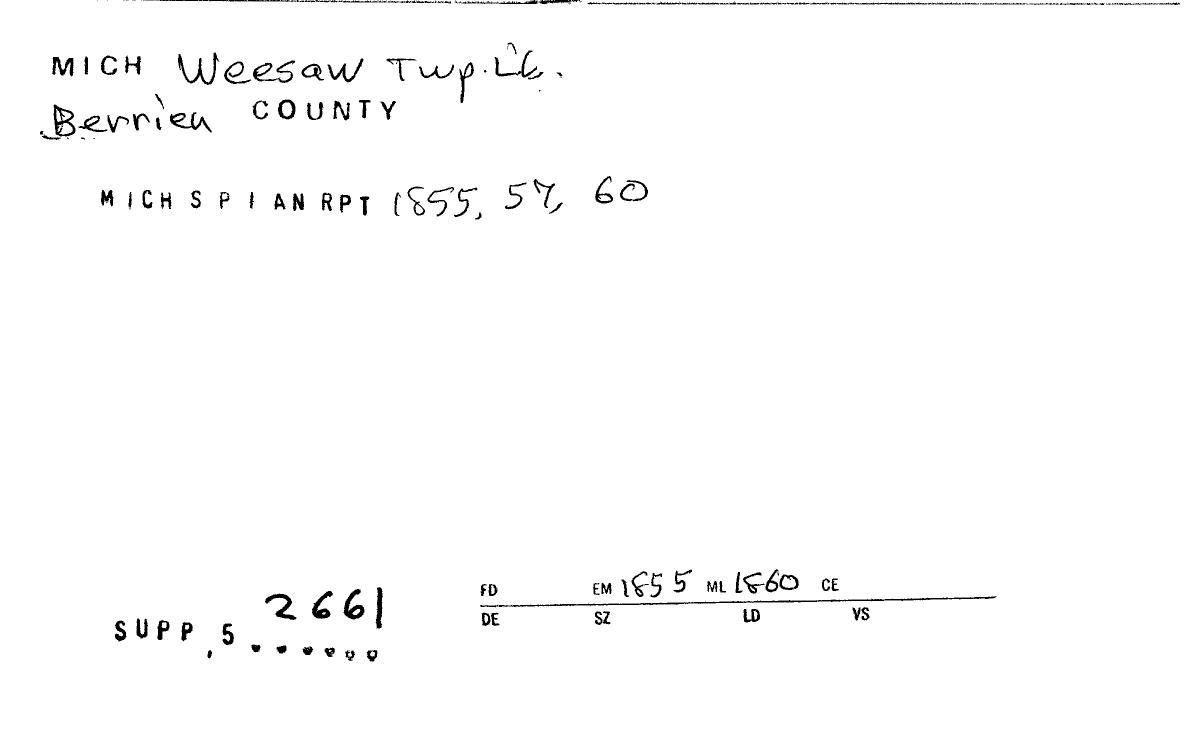 MICH Weesaw Twp. Lib.
Berrien COUNTY
MICH S P I AN RPT 1855, 57, 60
2661
SUPP, 5 . . . . . .
FD EM 1855 ML 1860 CE
DE SZ LD VS